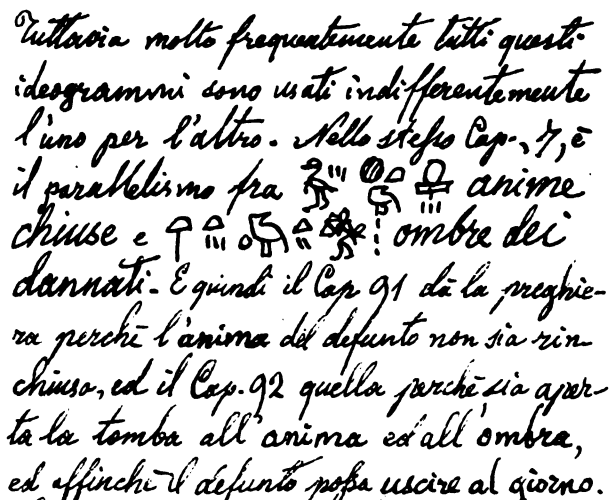 Tuttavia molto frequentemente tutti questi
ideogrammi sono usati indifferentemente
l'uno per l'altro. Nello stesso Cap., 7, è
il parallelismo fra anime
chiuse e ombre dei
dannati. E quindi il Cap 91 dà la preghie-
ra perchè l'anima del defunto non sia rin-
chiusa, ed il Cap. 92 quella perchè sia aper-
ta la tomba all'anima ed all'ombra,
ed affinchè il defunto possa uscire al giorno.